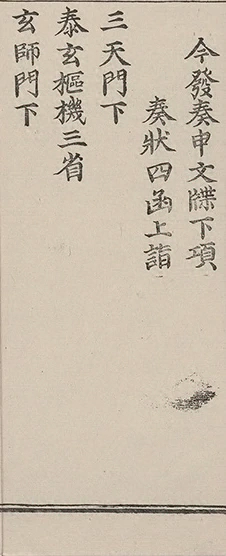 今發奏申文牒下項
奏狀四函上詣
三天門下
泰玄樞機三省
玄師門下